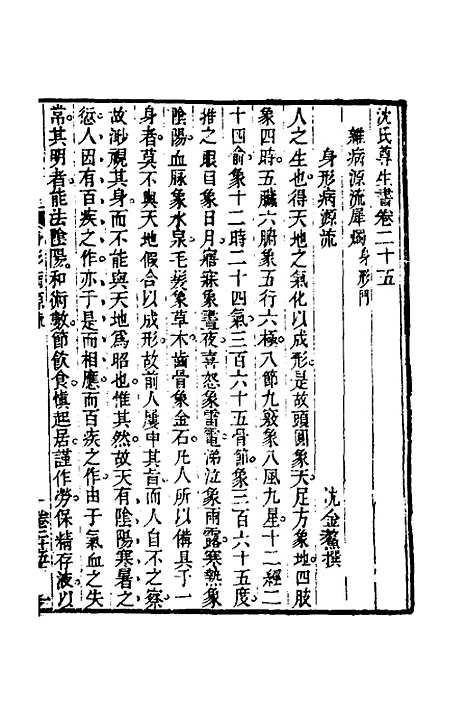 沈氏尊生書卷二十五
雜病源流犀燭 身形門
沈金鰲撰
身形病源流
人之生也得天地之氣化以成形是故頭圓象天足方象地四肢
象四時五臟六腑象五行六極八節九竅象八風九星十二經二
十四俞象十二時二十四氣三百六十五骨節象三百六十五度
推之眼目象日月寤寐象晝夜喜怒象雷電涕泣象雨露寒熱象
陰陽血脉象水泉毛髮象草木齒骨象金石凡人所以備具于一
身者莫不與天地假合以成形故前人屢申其旨而人自不之察
故渺視其身而不能與天地爲昭也惟其然故天有陰陽寒暑之
愆人因有百疾之作亦于是而相應而百疾之作由于氣血之失
常其明者能法陰陽和術數節飲食慎起居謹作勞保精存液以